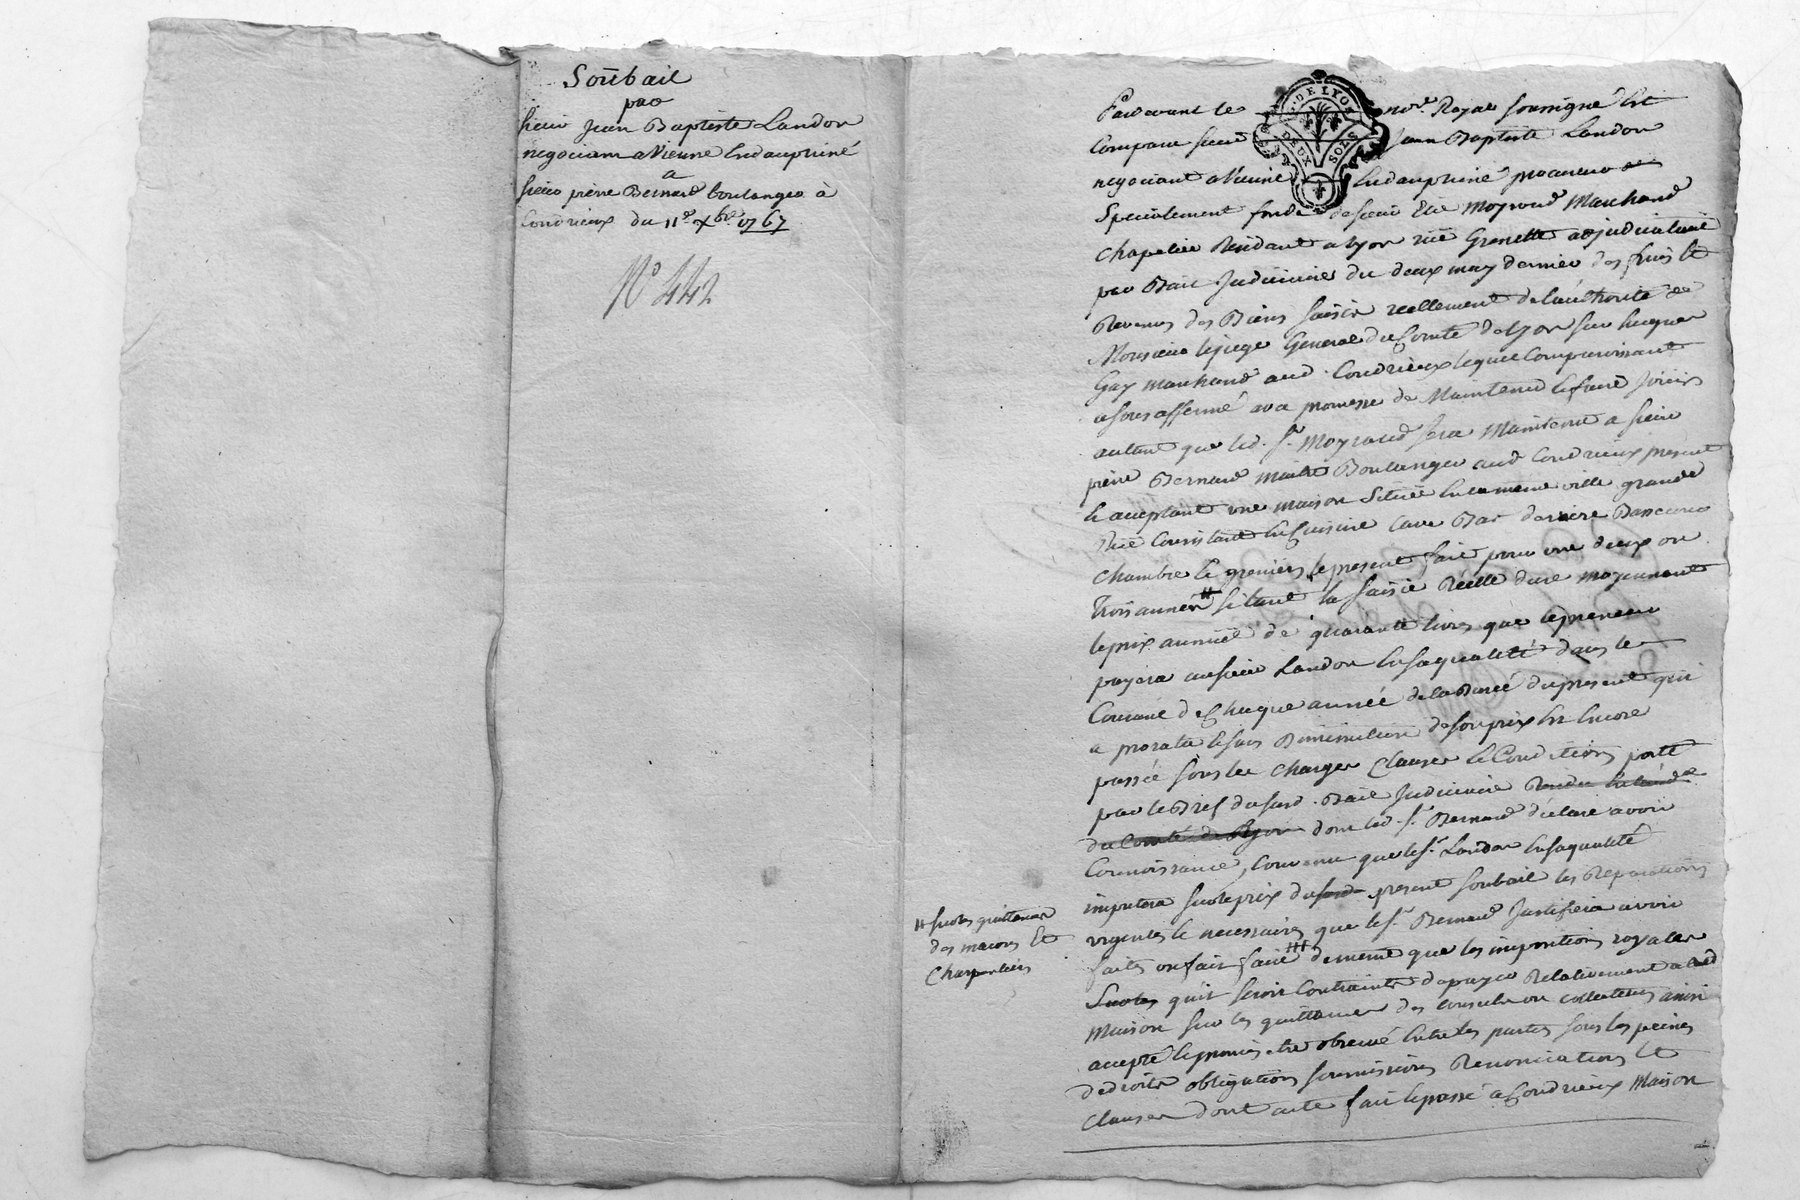 Soubail
par
sieur Jean Baptiste Landon
negociant a Vienne En dauphiné
a
sieur piere Bernard boulanger à
Condrieux du 11e xbre 1767
N° 442
Pardevant le nore Royal soussigné Est
Comparu sieur Jean Baptiste Landon
negociant a Vienne En dauphiné procureur
Specialement fondé de sieur Moyroud Marchand
chapelier Residant a lyon rüe Grenette adjudicataire
par Bail Judiciaire du deux may dernier des fruis Et
Revenus des Biens saisis reellement de l'authorité de
Monsieur le juge General du Comté de lyon sur
Gay marchand aud. Condrieux lequel Comparoissant
a sous affermé avec promesse de Maintenir Et faire Joüir
autant que led. sr Moyroud sera Maintenu a sieur
piere Bernard maitre Boulanger aud Condrieux present
Et acceptant une maison Sitüée En la meme ville grande
Rüe Consistant En Cuisine Cave Bas
chambre Et greniers le present fait pour une deux ou
trois années # si tant la saisie Reelle dure moyennant
le prix annuel de quarante livres que le preneur
payera au sieur Landon En sa qualité dans le
Courant de Chaque année de la Durée du present qui
a prorata Et sans Diminution de son prix Est Encore
passée sous les charges Clauses Et Conditions porté
par le Bref dususd. Bail Judiciaire
du Comté de lyon dont led. sr Bernard déclare avoir
Connoissance, Convenu que le sr Landon En sa qualité
imputera sur le prix du present soubail les Reparations
urgentes Et necessaires que le sr Bernard Justifiera avoir
faites ou fait faire # de meme que les impositions royales
qu'il seroit Contraint de payer Relativement a lad
Maison sur les quittances des Consuls ou collecteurs ainsi
accepté Et promis etre observé Entre les parties sous les peines
de droits obligations soumissions Renonciations Et
Clauses dont acte fait Et passé à Condrieux Maison
# sur les quittances
des macons Et
Charpentiers
G. DE LYON
DEUX SOLS